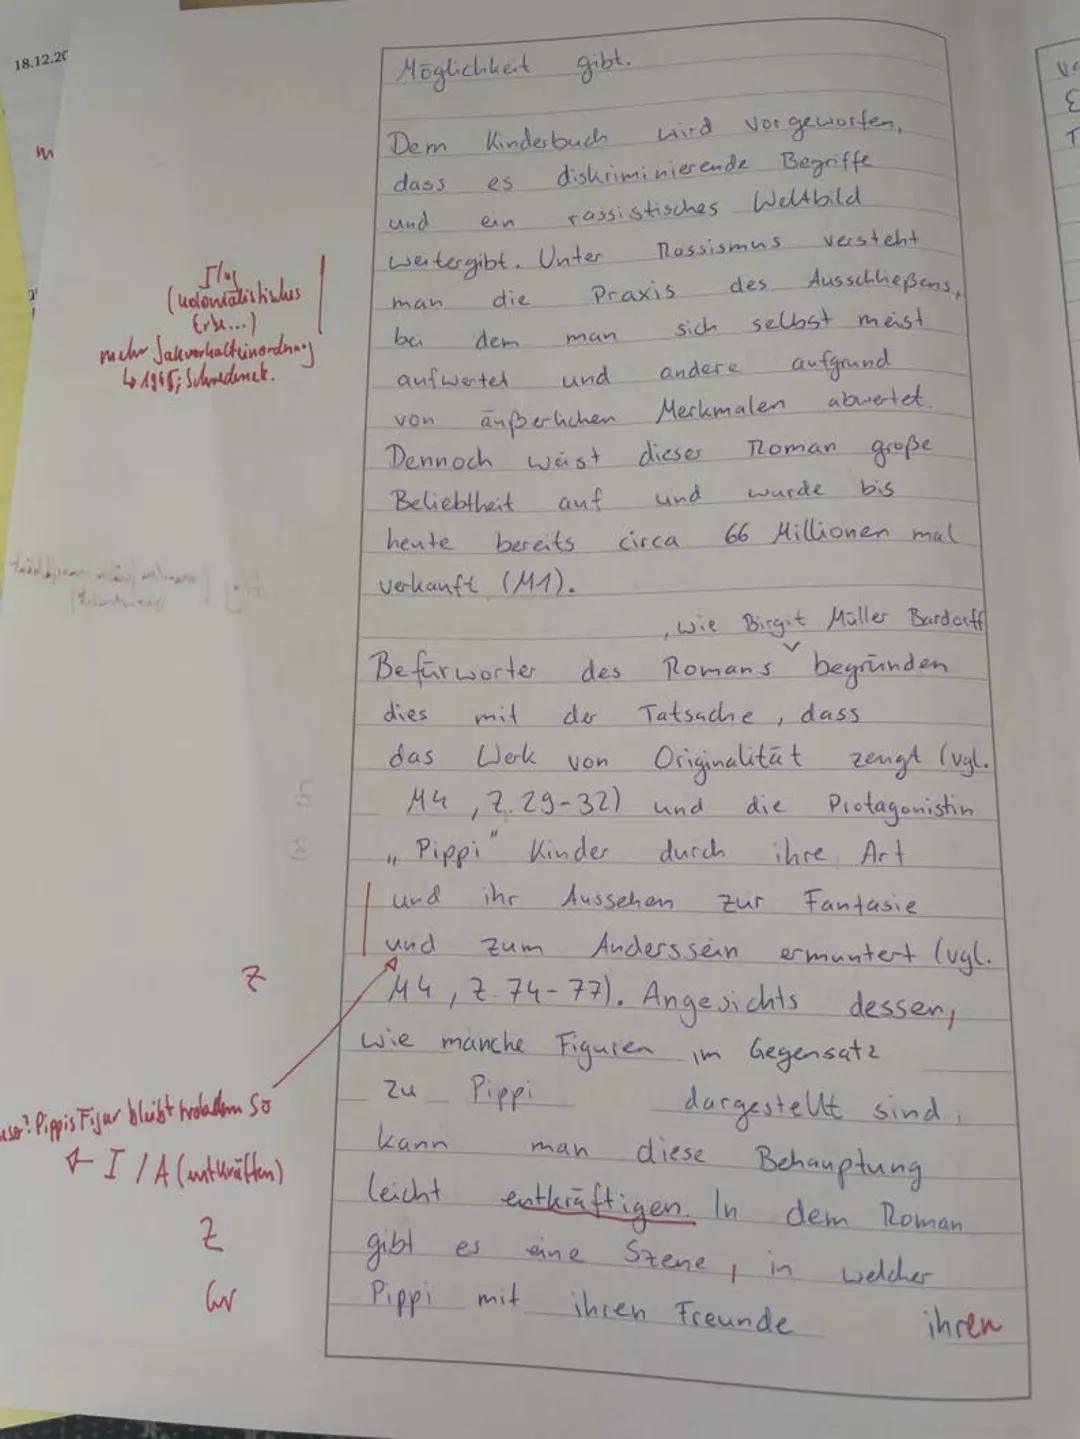 18.12.20
Möglichkeit gibt.
Dem Kinderbuch wird vorgeworfen,
dass es diskriminierende Begriffe
und ein rassistisches Weltbild
weitergibt. Unter Rassismus versteht
man die Praxis des Ausschließens,
bei dem man sich selbst meist
aufwertet und andere aufgrund
von äußerlichen Merkmalen abwertet.
Dennoch weist dieser Roman große
Beliebtheit auf und wurde bis
heute bereits circa 66 Millionen mal
verkauft (M1).
, wie Birgit Müller Bardorff
Befürworter des Romans begründen
dies mit der Tatsache, dass
das Werk von Originalität zeugt (vgl.
M4, Z. 29-32) und die Protagonistin
„Pippi" Kinder durch ihre Art
und ihr Aussehen zur Fantasie
und zum Anderssein ermuntert (vgl.
M4, Z. 74-77). Angesichts dessen,
wie manche Figuren im Gegensatz
zu Pippi dargestellt sind,
kann man diese Behauptung
leicht entkräftigen. In dem Roman
gibt es eine Szene, in welcher
Pippi mit ihren Freunde ihren
(kolonialistisches
Erbe...)
mehr Sachverhalteinordnung
↳ 1945; Schwedenek.
Z
Pippis Figur bleibt trotzdem so
I / A (entkräften)
Z
Gr